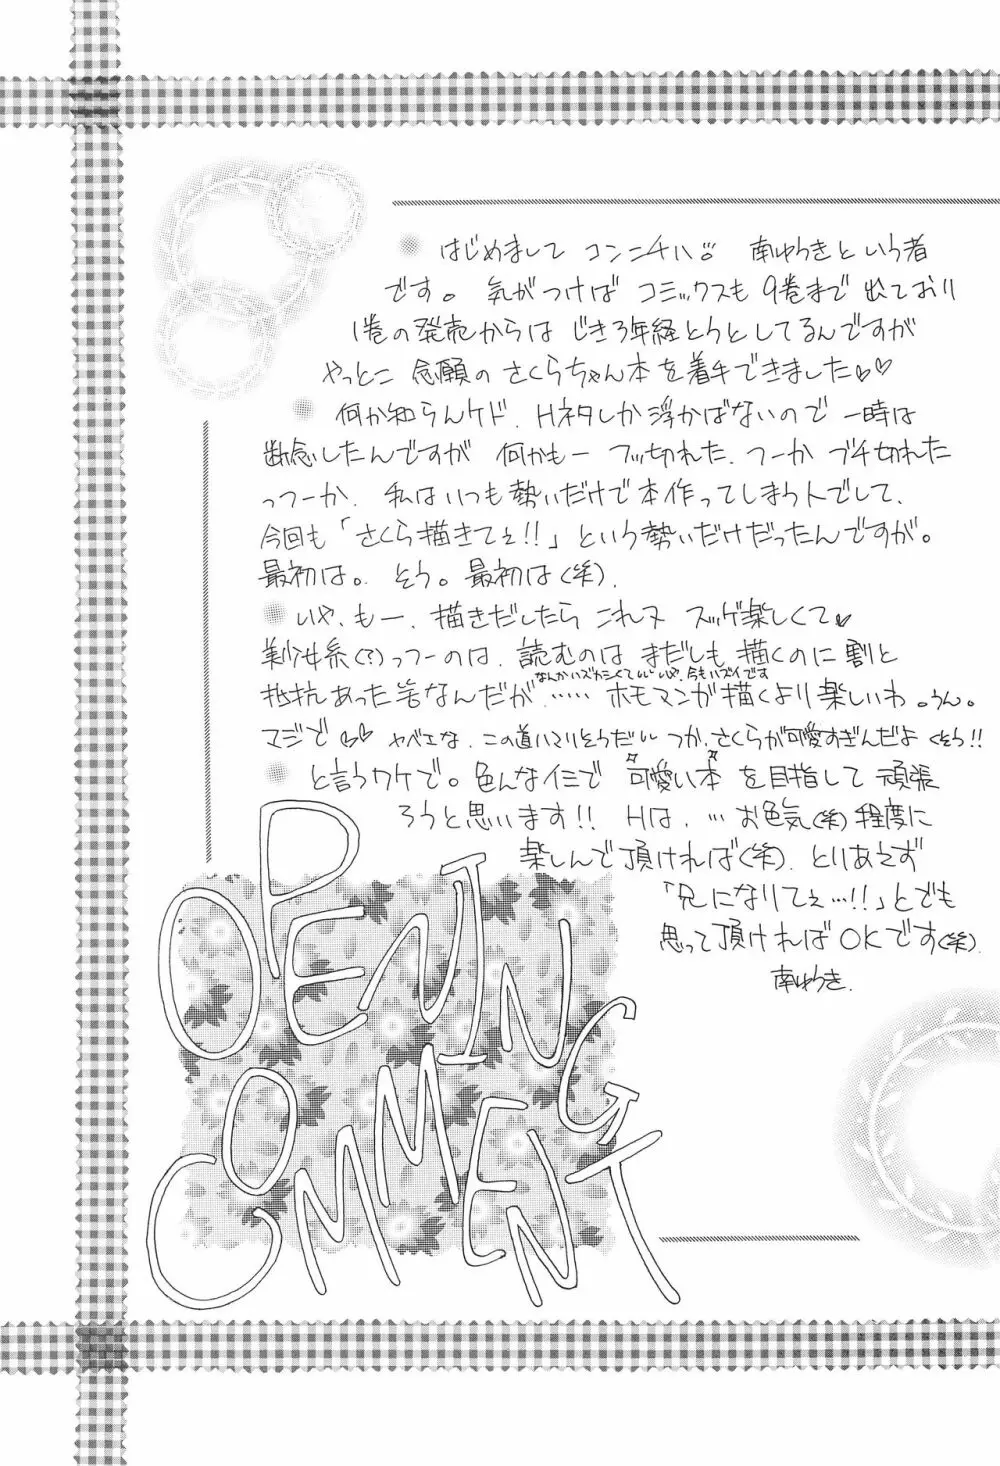 はじめまして コンニチハ 南ゆうきという者
です。気がつけば コミックスも 9巻まで 出ており
1巻の発売からは じき3年経とうとしてるんですが
やっとこ 念願の さくらちゃん本を着手できました♡♡
何か知らんケド、Hネタしか浮かばないので 一時は
断念したんですが 何かもー フッ切れた、つーか ブチ切れた
っつーか、私はいつも勢いだけで本作ってしまう人でして、
今回も「さくら描きてぇ!!」という勢いだけだったんですが。
最初は。そう。最初は(笑)。
いや、もー、描きだしたら これヌ スッゲ楽しくて♡
美少女系(?)っつーのは、読むのは まだしも 描くのに 割と
なんかハズカシくてい いや、今もハズイです
抵抗あった筈なんだが、…… ホモマンガ描くより楽しいわ。うん。
マジで♡♡ ヤベェな、この道ハマりそうだい つか、さくらが可愛すぎんだよ くそう!!
と言うワケで。色んなイミで 可愛い本 を目指して 頑張
ろうと思います!! Hは、… お色気(笑)程度に
楽しんで頂ければ(笑)。とりあえず
「兄になりてぇ…!!」とでも
思って頂ければOKです(笑)。
南ゆうき.
OPENING
COMMENT